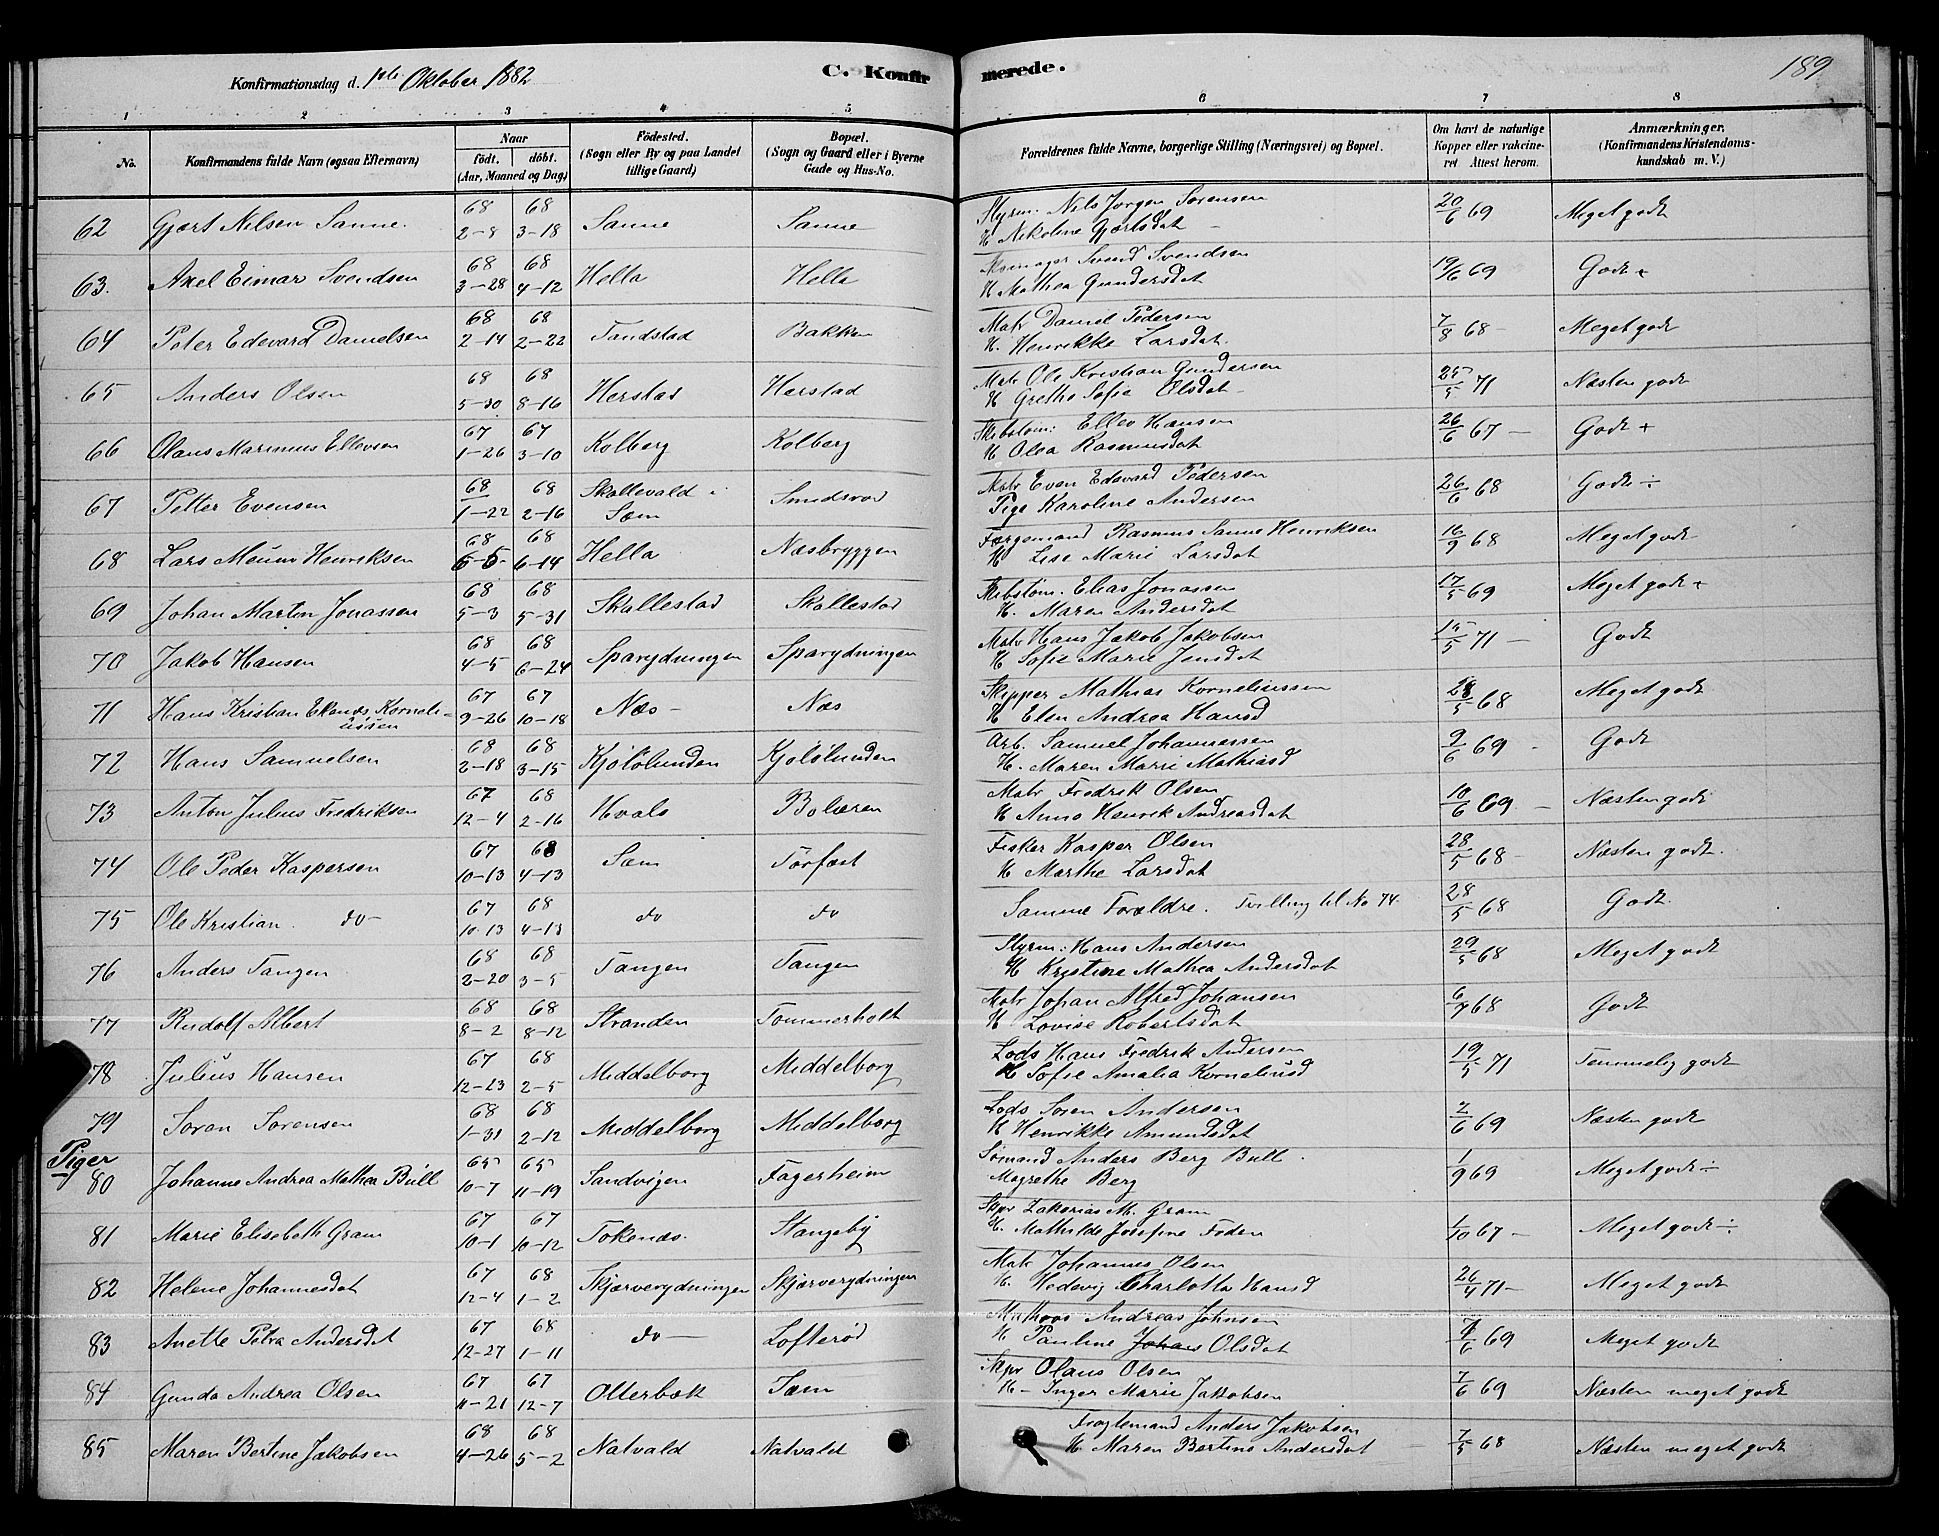 Konfirmationsdag d. 1ste Oktober 1882
C. Konfirmerede.
189
1 2 3 4 5 6 7 8
No. Konfirmandens fulde Navn (ogsaa Efternavn) Naar født. døbt. (Aar, Maaned og Dag) Fødested. (Sogn eller By og paa Landet tillige Gaard) Bopæl. (Sogn og Gaard eller i Byerne Gade og Hus-No. Forældrenes fulde Navne, borgerlige Stilling (Næringsvei) og Bopæl. Om havt de naturlige Kopper eller vakcineret Attest herom. Anmærkninger. (Konfirmandens Kristendomskundskab m. V.)
62 Gjært Nilsen Sanne. 68 2-8 68 3-18 Sanne Sanne Styrm. Nils Jørgen Sørensen H Nikoline Gjærtsdat 20/6 69 Meget godt
63. Axel Eimar Svendsen 68 3-28 68 4-12 Hella Hella Skomager Svend Svendsen H Mathea Gundersdat 19/6 69 Godt +
64 Peter Edevard Danielsen 68 2-14 68 2-22 Tandstad Bakken Matr Daniel Pedersen H. Henrikke Larsdat. 7/8 68- Meget godt
65 Anders Olsen 68 5-30 68 8-16 Herstad Herstad Matr Ole Kristian Gundersen H Grethe Sofie Olsdat 25/5 71 Næsten godt
66 Olaus Marinius Ellevsen 67 1-26 67 3-10 Kolberg Kolberg Skibstøm: Ellev Hansen H Olea Rasmusdat 26/6 67 - Godt +
67 Petter Evensen 68 1-22 68 2-16 Skallevald i Sæm Smidsrød Matr Even Edevard Pedersen Pige Karoline Andersen 26/6 68 Godt ÷
68 Lars Meum Henriksen 68 5-5- 68 6-14 Hella Næsbryggen Færgemand Rasmus Sanne Henriksen H Lise Marie Larsdat 16/9 68 Meget godt
69 Johan Martin Jonassen 68 5-3 68 5-31 Skallestad Skallestad Skibstøm. Elias Jonassen H. Maren Andersdat 17/5 69 Meget godt +
70 Jakob Hansen 68 4-5 68 6-24 Sparydningen Sparydningen Matr Hans Jakob Jakobsen H Sofie Marie Jensdat 15/5 71 - Godt
71 Hans Kristian Ekenæs Korneliussen 67 9-26 67 10-18 Næs - Næs Skipper Mathias Korneliussen H Elen Andrea Hansd 28/5 68 Meget godt
72 Hans Samuelsen 68 2-18 68 3-15 Kjølølunden Kjølølunden Arb. Samuel Johannessen H. Maren Marie Mathiasd 9/6 69 - Godt
73 Anton Julius Fredriksen 67 12-4 68 2-16 Hvals Bolæren Matr Fredrik Olsen H Anne Henrik Andreasdat 10/6 69 - Næsten godt
74 Ole Peder Kaspersen 67 10-13 68 4-13 Sæm Torfæst Fisker Kasper Olsen H Marthe Larsdat 28/5 68 - Næsten godt.
75 Ole Kristian do- 67 10-13 68 4-13 do do Samme Forældre. Tvilling til No 74. 28/5 68 Godt.
76 Anders Tangen 68 2-20 68 3-5 Tangen Tangen Styrm: Hans Andersen H Kristine Mathea Andersdat 29/5 68 Meget godt
77 Rudolf Albert 68 8-2 68 8-12 Stranden Tommerholt Matr Johan Alfred Johansen H Lovise Robertsdat 6/7 68 Godt
78 Julius Hansen 67 12-23 68 2-5 Middelborg Middelborg Lods Hans Fredrik Andersen H Sofie Amalia Korneliusd 19/5 71 Temmelig godt
79 Søren Sørensen 68 1-31 68 2-12 Middelborg Middelborg Lods Søren Andersen H Henrikke Amundsdat 2/6 69 Næsten godt
Piger
80 Johanne Andrea Mathea Bull 65 10-7 65 11-19 Sandvigen Fagerheim Sømand Anders Berg Bull. Magrethe Berg 1/9 69 Meget godt ÷
81 Marie Elisabeth Gram 67 10-1 67 10-12 Tokenæs. Stangeby Skpr Zakarias M. Gram H. Mathilde Josefine Foden 1/10 67 - Meget godt ÷
82 Helene Johannesdat 67 12-4 68 1-2 Skjærverydningen Skjærverydningen Matr Johannes Olsen H. Hedevig Charlotta Hansd 26/4 71- Meget godt
83 Anette Petra Andersdat 67 12-27 68 1-11 do - Lofterød Mathoos Andreas Johnsen H Pauline Johans Olsdat 7/6 69 Meget godt
84 Gunda Andrea Olsen 67 11-21 67 12-7 Otterbæk Tæm Skpr Olaus Olsen H- Inger Marie Jakobsen 7/6 69 Næsten meget godt
85 Maren Bertine Jakobsen 68 4-26 68 5-2 Natvald Natvald Fragtemand Anders Jakobsen H Maren Bertine Andersdat 7/5 68 Næsten meget godt